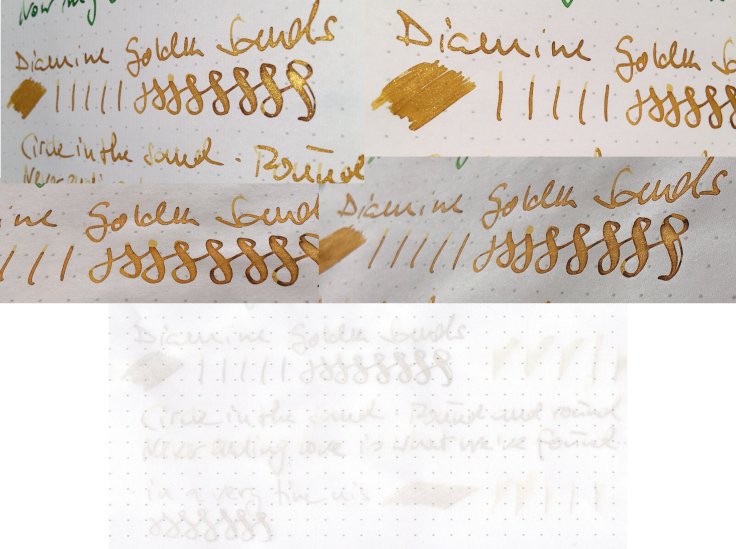 Now my
Diamine Golden Sands
Circle in the Sand - Round
Never ending
Diamine Golden S
ine Golden Sands
Diamine Golden Sands
Diamine Golden Sands
Circle in the sand - Round and round
Never ending love is what we've found
in a very fine nib